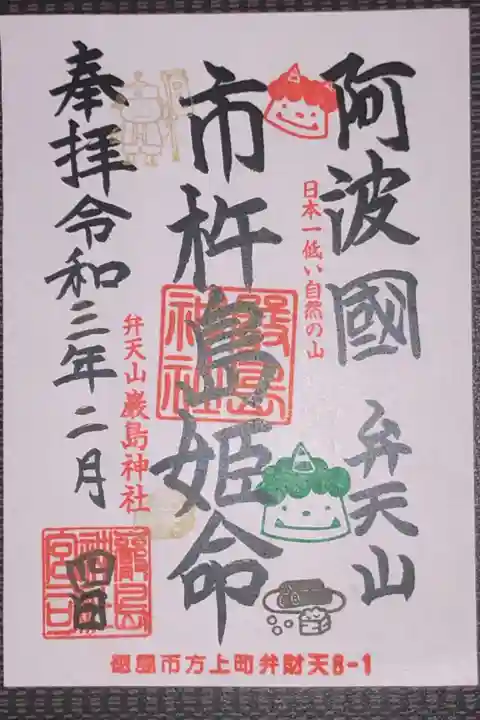 阿波國 弁天山
日本一低い自然の山
市杵島姫命
嚴島神社
弁天山厳島神社
奉拝令和三年二月
四日
嚴島神社宮司
徳島市方上町弁財天8-1